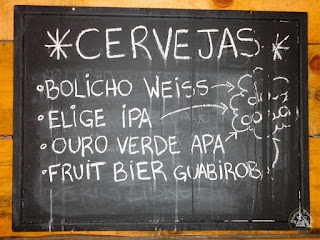 *CERVEJAS*
•BOLICHO WEISS
•ELIGE IPA
•OURO VERDE APA
•FRUIT BIER GUABIROB